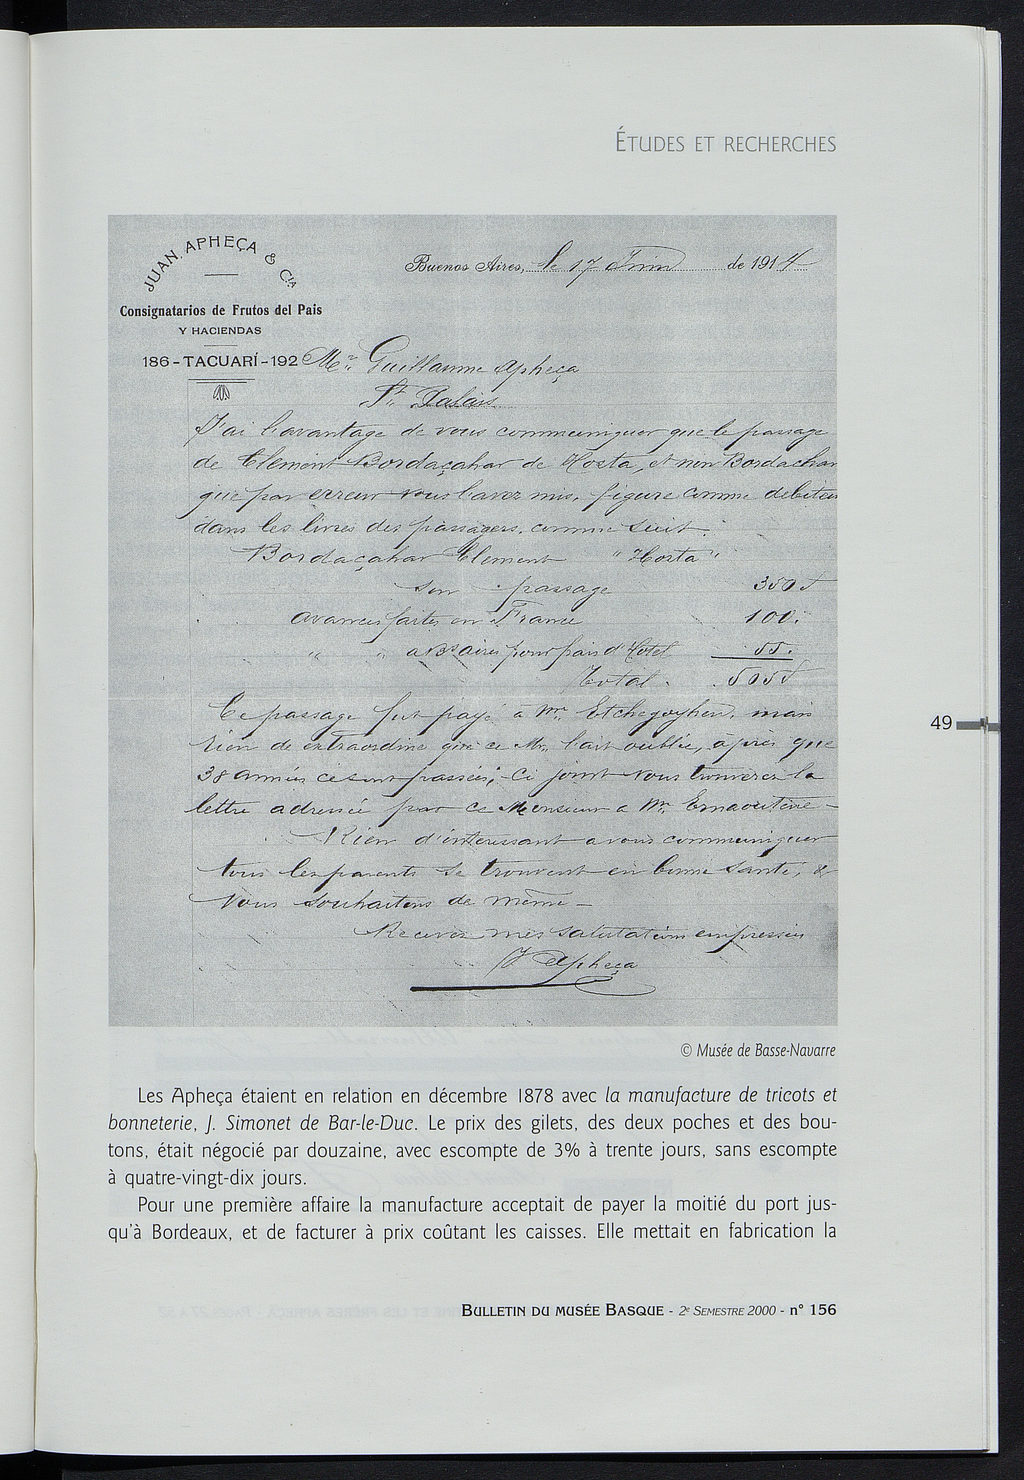 ÉTUDES ET RECHERCHES
JUAN APHEÇA & Cía
Buenos Aires, le 17 Juin de 1914
Consignatarios de Frutos del Pais
Y HACIENDAS
186-TACUARÍ-192
Mr. Guillaume Apheça
St. Palais
J'ai l'avantage de vous communiquer que le passage
de Clement Bordaçahar de Hosta, et non Bordachar
que par erreur vous l'avez mis, figure comme debiteur
dans les livres des passagers, comme suit:
Bordaçahar Clement "Hosta"
son passage 350 f
avances faites en France 100.
" " a Bs aires pour frais d'Hotel 55.
Total. 505 f
Ce passage fut payé a Mr. Etchegoyhen, mais
rien de extraordine que ce Mr. l'ait oublié, après que
38 années ce sont passées; Ci joint vous trouverez la
lettre adressée par ce Monsieur a Mr.
Rien d'interessant a vous communiquer
tous les parents se trouvent en bonne santé, &
vous souhaitons de même -
Recevez mes salutations empressées
J Apheça
© Musée de Basse-Navarre
49
Les Apheça étaient en relation en décembre 1878 avec la manufacture de tricots et
bonneterie, J. Simonet de Bar-le-Duc. Le prix des gilets, des deux poches et des bou-
tons, était négocié par douzaine, avec escompte de 3% à trente jours, sans escompte
à quatre-vingt-dix jours.
Pour une première affaire la manufacture acceptait de payer la moitié du port jus-
qu'à Bordeaux, et de facturer à prix coûtant les caisses. Elle mettait en fabrication la
BULLETIN DU MUSÉE BASQUE - 2e SEMESTRE 2000 - n° 156